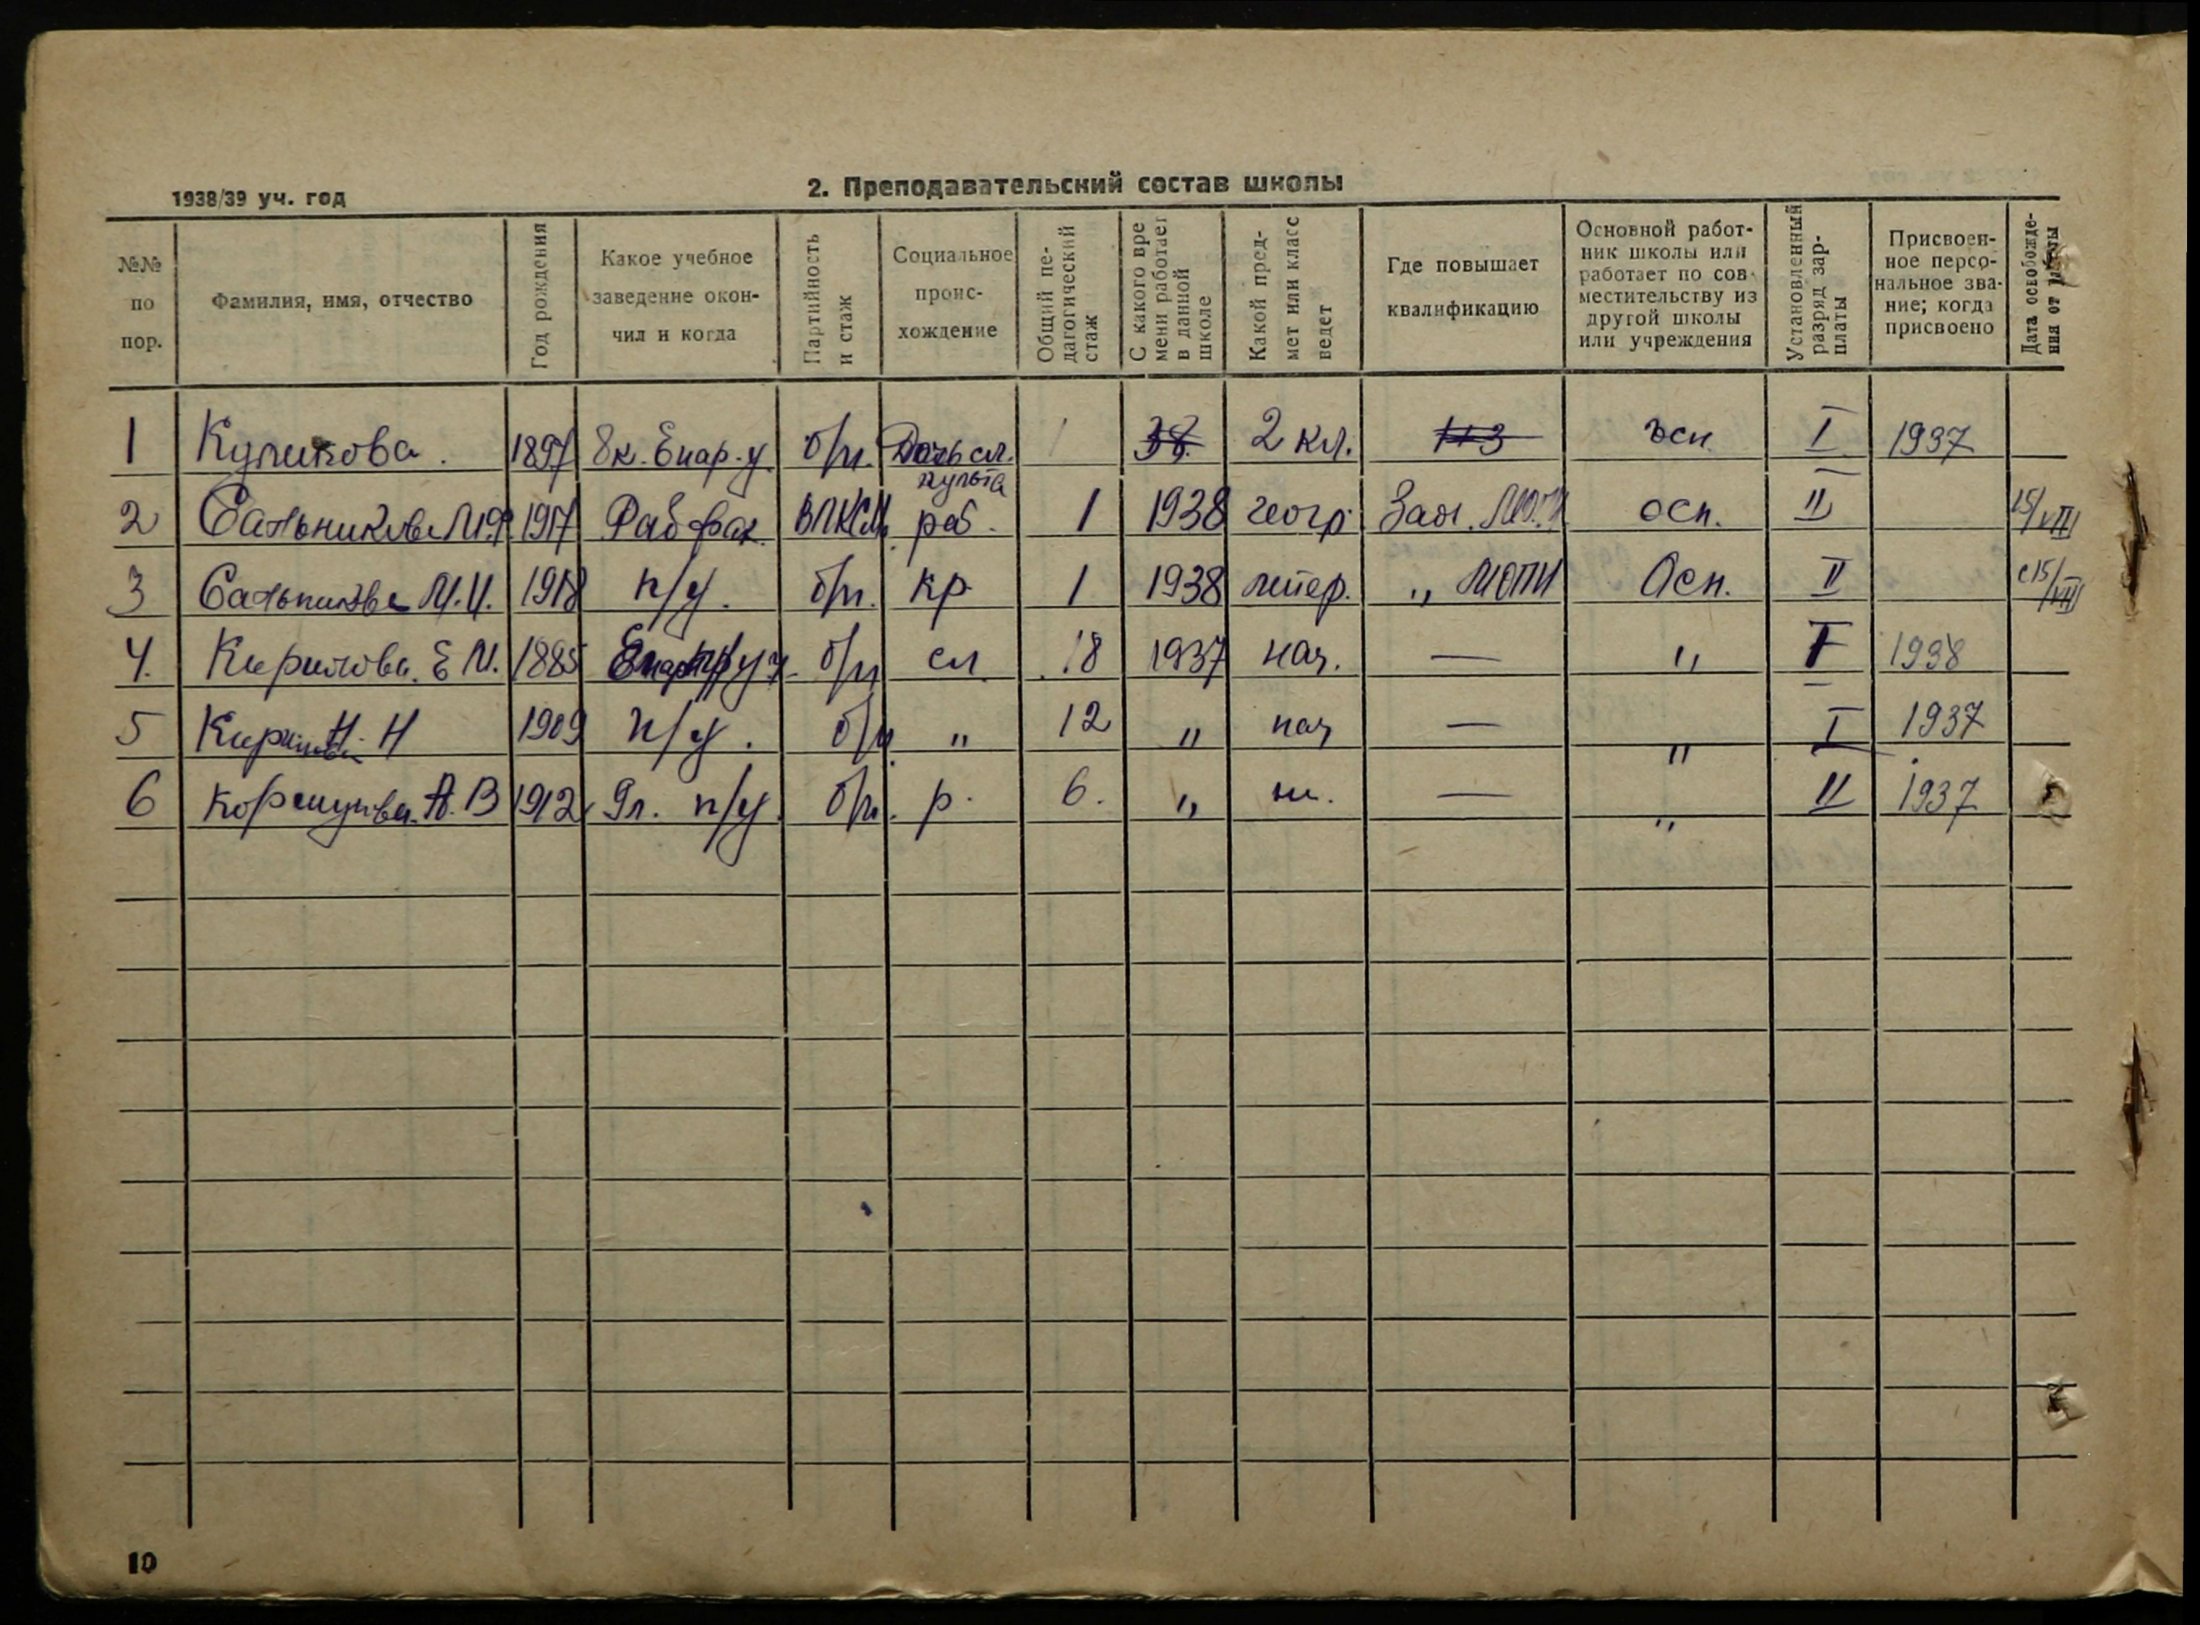 1938/39 уч. год
2. Преподавательский состав школы
№№ по пор.
Фамилия, имя, отчество
Год рождения
Какое учебное заведение окончил и когда
Партийность и стаж
Социальное происхождение
Общий педагогический стаж
С какого времени работает в данной школе
Какой предмет или класс ведет
Где повышает квалификацию
Основной работник школы или работает по совместительству из другой школы или учреждения
Установленный разряд зарплаты
Присвоенное персональное звание; когда присвоено
Дата освобождения от работы
1 Куликова. 1897 8к. Епар. у. б/п. Дочь сл. культа 38 2 кл. осн. I 1937
2 Сальникова М.Ф. 1917 Рабфак. ВЛКСМ раб. 1 1938 геогр. Заоч. осн. II 15/VIII
3 Сальникова М.И. 1918 п/у. б/п. кр 1 1938 литер. „ МОПИ Осн. II с15/VIII
4. Кирилова. Е М. 1885 б/п сл. 18 1937 нач. — „ I 1938
5 Н 1909 п/у. б/п „ 12 „ нач — „ I 1937
6 Коршунова. А. В 1912 п/у. б/п. р. 6. „ — „ II 1937
10